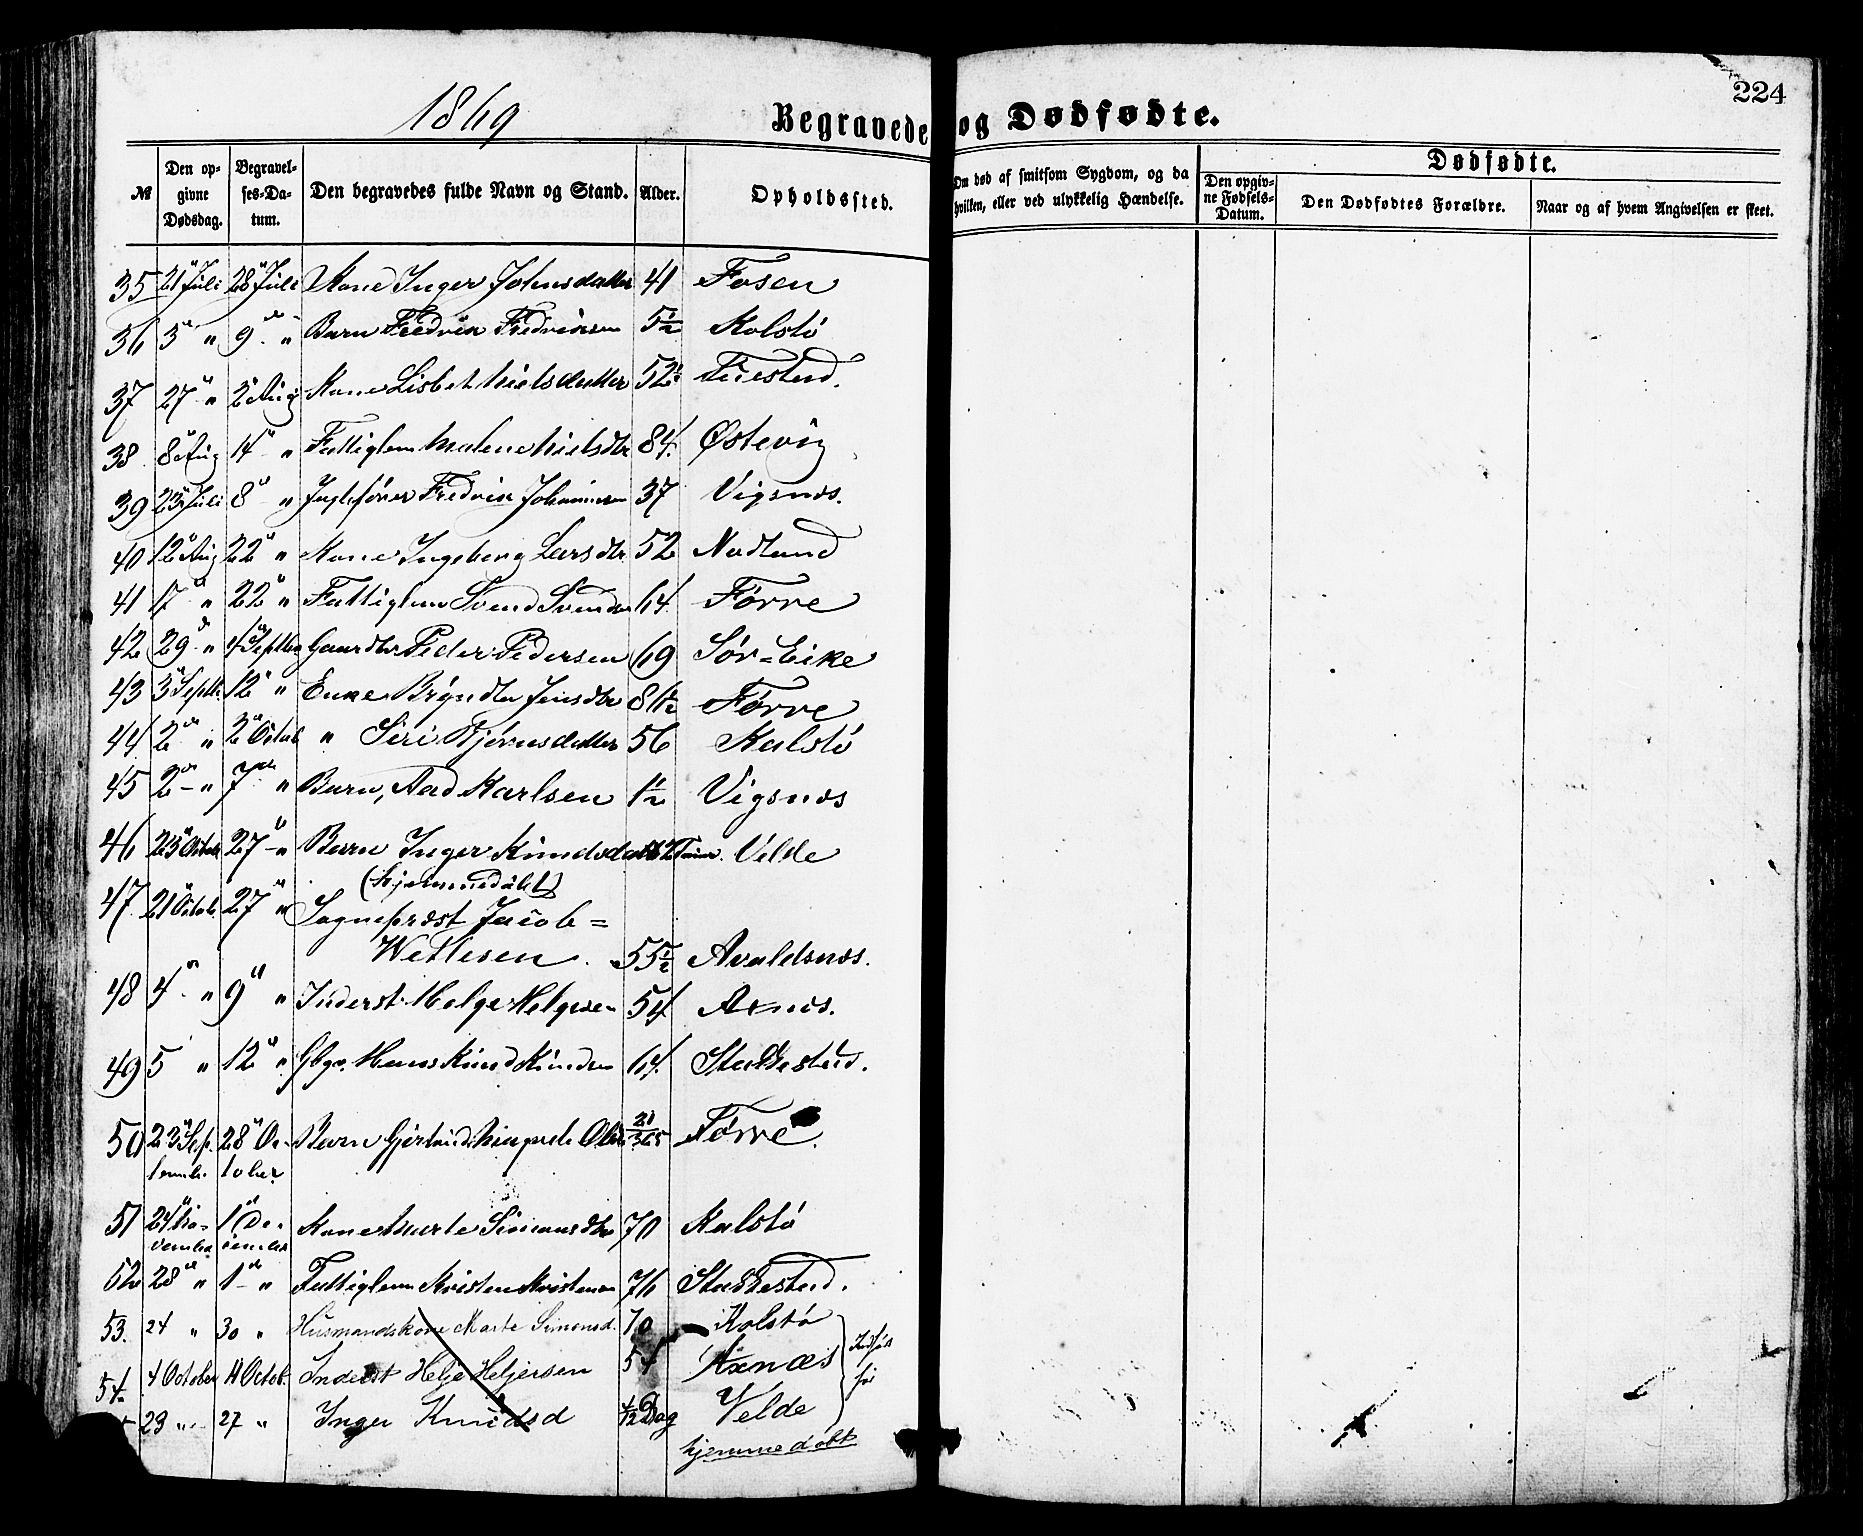 1869
Begravede og Dødfødte.
224
№
Den opgivne Dødsdag.
Begravelses-Datum.
Den begravedes fulde Navn og Stand.
Alder.
Opholdssted.
Om død af smitsom Sygdom, og da hvilken, eller ved ulykkelig Hændelse.
Dødfødte.
Den opgivne Fødsels-Datum.
Den Dødfødtes Forældre.
Naar og af hvem Angivelsen er skeet.
35 21 Juli 28 Juli Kone Inger Johnsdatter 41 Fosen
36 3 " 9 " Barn Fredrik Fredriksen 5½ Kolstö
37 27 " 2 Aug Kone Lisbet Nielsdatter 52½
38 8 Aug 14 " Fattiglem Malene Nielsdtr 84 Østevig
39 23 Juli 8 " Fredrik Johannesen 37 Vigsnæs.
40 12 Aug 22 " Kone Ingeborg Larsdtr 52 Nodland
41 17 " 22 " Fattiglem Svend Svends 64 Førre
42 29 " 4 Septbr Gaardbr Peder Pedersen 69 Sör-Eike
43 3 Septbr 12 " Enke Jensdtr 81½ Førre
44 2 " 2 Octob " Siri Bjørnsdatter 56 Kalstö
45 2 - " 7 " Barn, Aad Karlsen 1½ Vigsnæs
46 23 Octob 27 - " Barn Inger Knudsdatt 12 Timer. Velde
(hjemmedøbt)
47 21 Octob 27 " Sogneprest Jacob=
Wetlesen. 55½ Avaldsnæs.
48 4 " 9 " Inderst Helge Helgesen 54 Axnæs.
49 5 " 12 " Gbgr. Hans Knud Knudsen 64 Stakkestad.
50 23 Sep- 28 Oc- Barn Gjertrud Olsd 21/365 Førre.
tember tober
51 24 No- 1 De- Kone Marte Simonsdtr 70 Kalstö
vember cember
52 28 " 1 - " Fattiglem Kristen Kristensen 76 Stakkestad.
53. 24 " 30 " Husmandskone Marte Simonsd. 70 Kolstö
54 4 October 11 Octob. Inderst Helje Heljersen 54 Axnæs
23 " 27 " Inger Knudsd ½ Dag Velde
hjemmedøbt